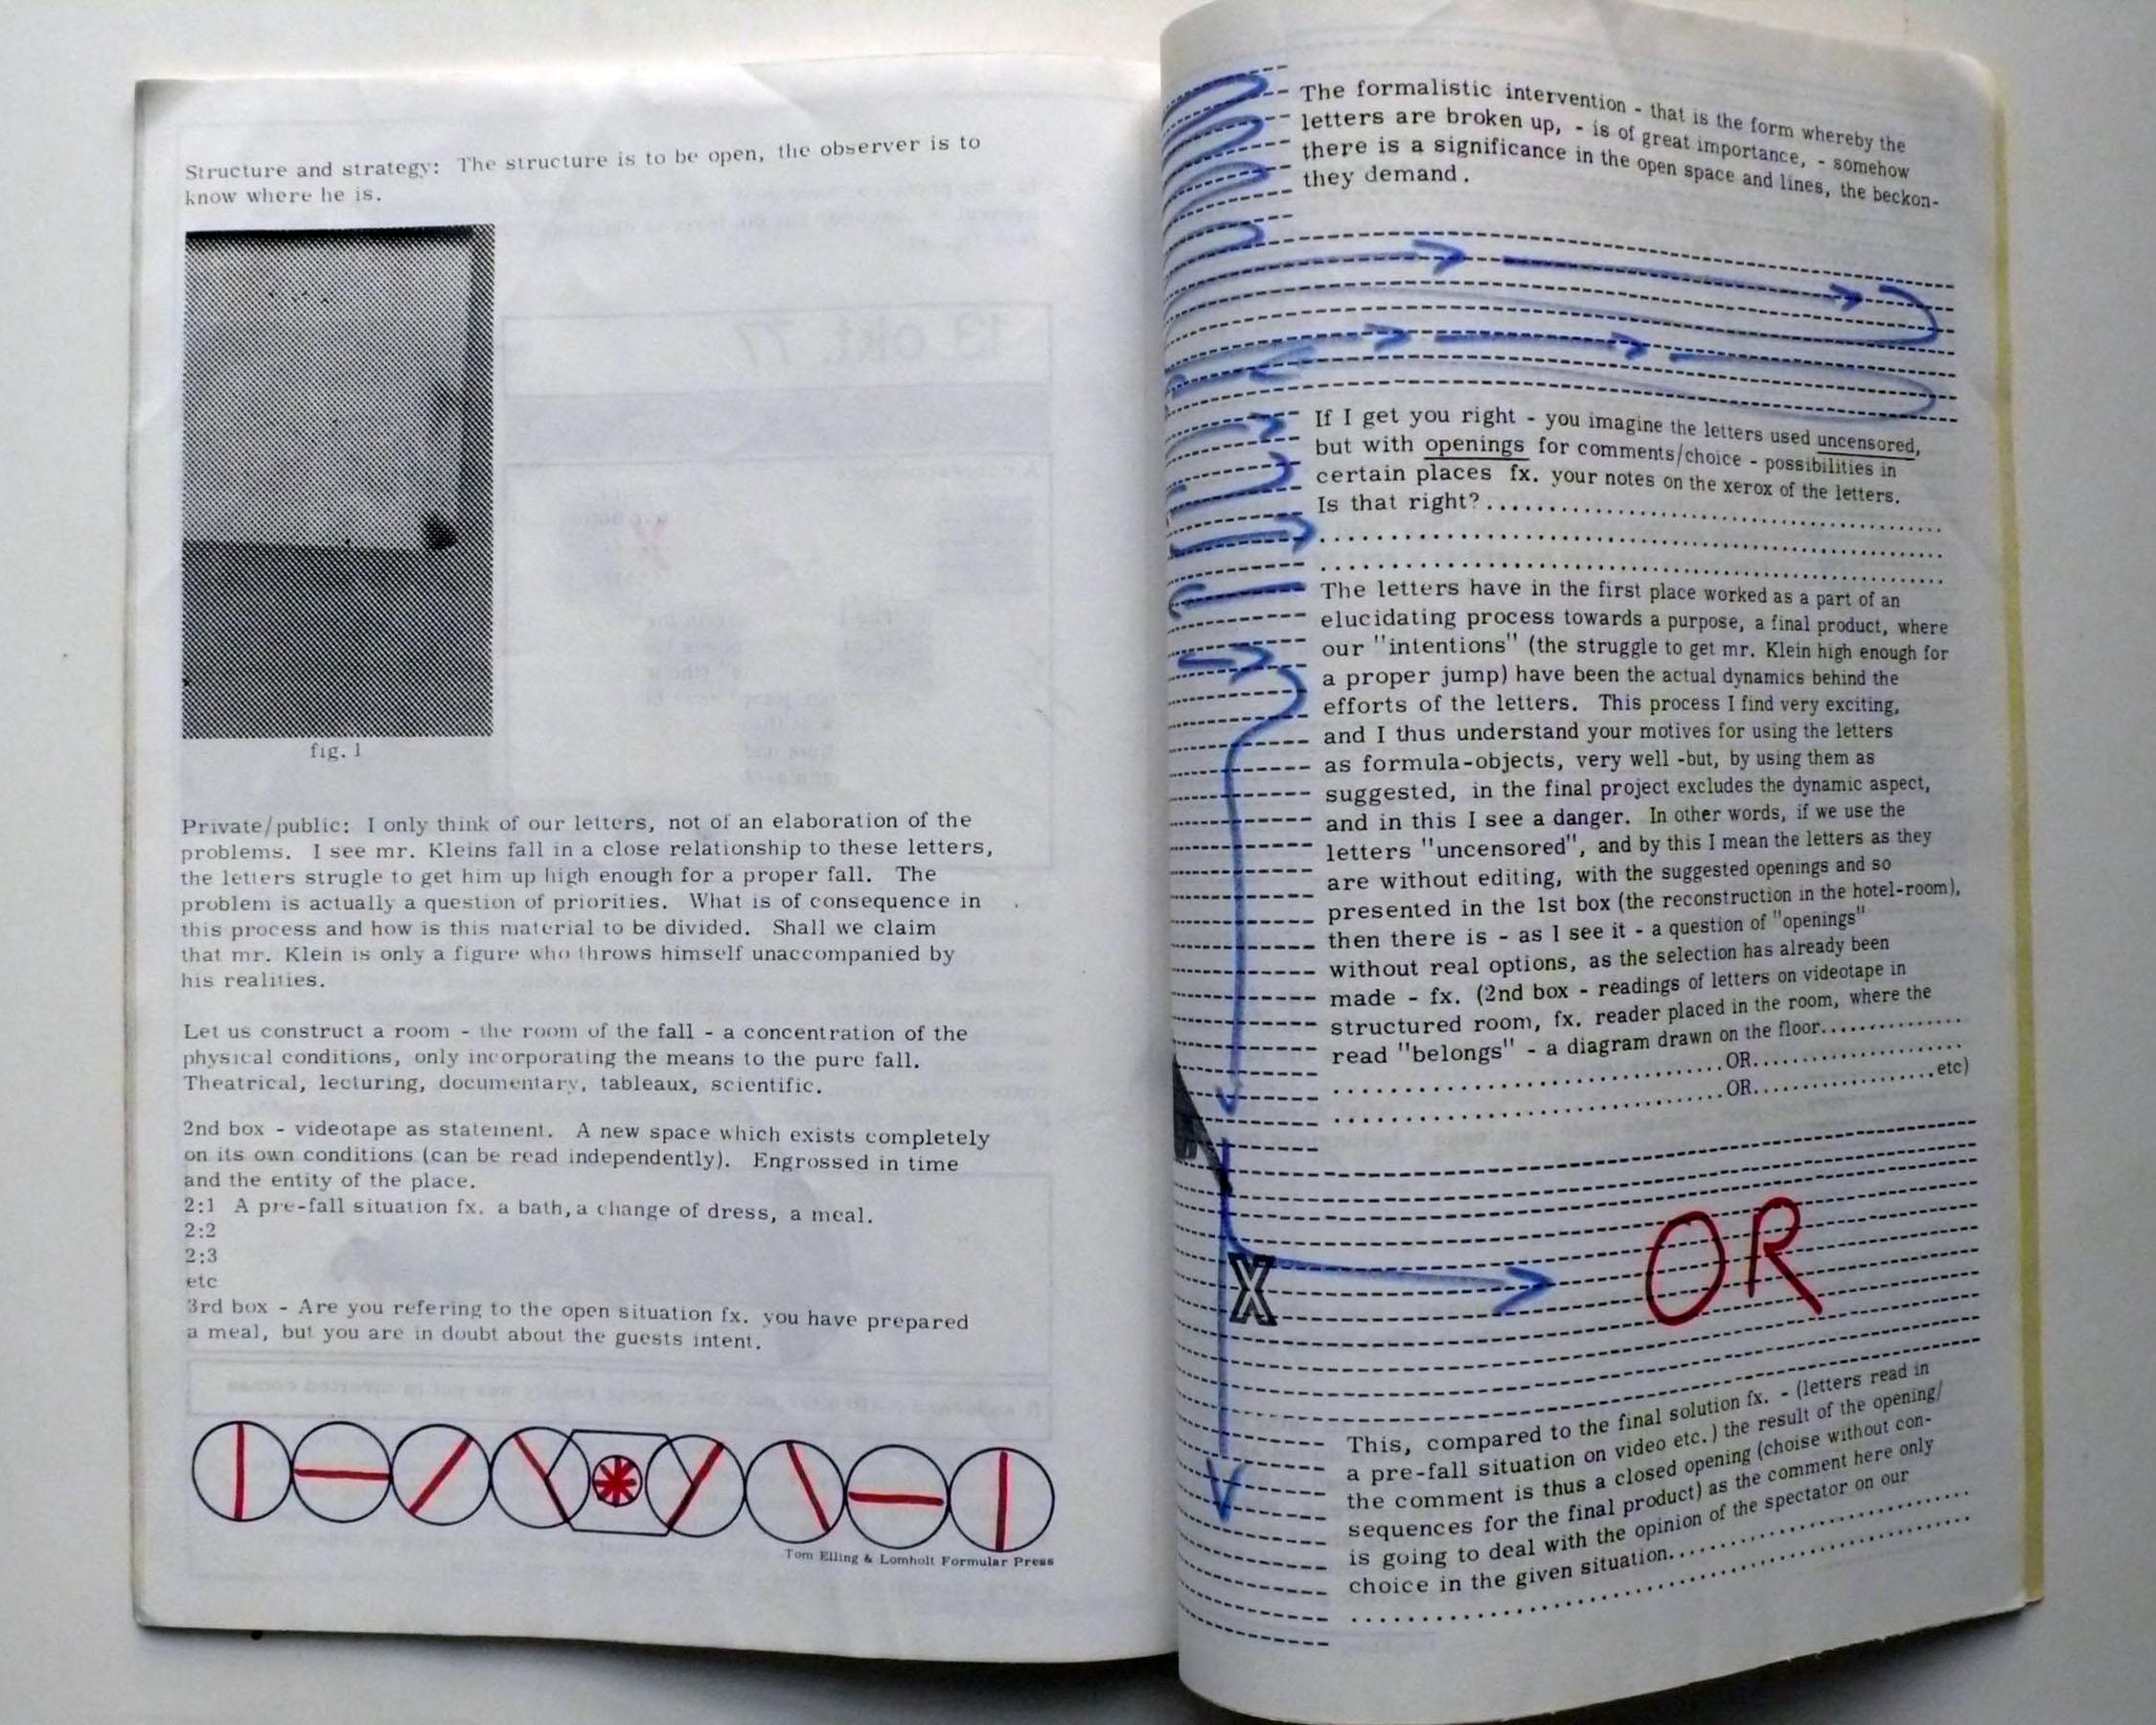 Structure and strategy: The structure is to be open, the observer is to
know where he is.
fig. 1
Private/public: I only think of our letters, not of an elaboration of the
problems. I see mr. Kleins fall in a close relationship to these letters,
the letters strugle to get him up high enough for a proper fall. The
problem is actually a question of priorities. What is of consequence in
this process and how is this material to be divided. Shall we claim
that mr. Klein is only a figure who throws himself unaccompanied by
his realities.
Let us construct a room - the room of the fall - a concentration of the
physical conditions, only incorporating the means to the pure fall.
Theatrical, lecturing, documentary, tableaux, scientific.
2nd box - videotape as statement. A new space which exists completely
on its own conditions (can be read independently). Engrossed in time
and the entity of the place.
2:1 A pre-fall situation fx. a bath, a change of dress, a meal.
2:2
2:3
etc
3rd box - Are you refering to the open situation fx. you have prepared
a meal, but you are in doubt about the guests intent.
Tom Elling & Lomholt Formular Press
The formalistic intervention - that is the form whereby the
letters are broken up, - is of great importance, - somehow
there is a significance in the open space and lines, the beckon-
they demand.
If I get you right - you imagine the letters used uncensored,
but with openings for comments/choice - possibilities in
certain places fx. your notes on the xerox of the letters.
Is that right?........................................
..................................................
..................................................
The letters have in the first place worked as a part of an
elucidating process towards a purpose, a final product, where
our "intentions" (the struggle to get mr. Klein high enough for
a proper jump) have been the actual dynamics behind the
efforts of the letters. This process I find very exciting,
and I thus understand your motives for using the letters
as formula-objects, very well -but, by using them as
suggested, in the final project excludes the dynamic aspect,
and in this I see a danger. In other words, if we use the
letters "uncensored", and by this I mean the letters as they
are without editing, with the suggested openings and so
presented in the 1st box (the reconstruction in the hotel-room),
then there is - as I see it - a question of "openings"
without real options, as the selection has already been
made - fx. (2nd box - readings of letters on videotape in
structured room, fx. reader placed in the room, where the
read "belongs" - a diagram drawn on the floor...............
................................OR....................
................................OR..................etc)
X
OR
This, compared to the final solution fx. - (letters read in
a pre-fall situation on video etc.) the result of the opening/
the comment is thus a closed opening (choise without con-
sequences for the final product) as the comment here only
is going to deal with the opinion of the spectator on our
choice in the given situation..............................
..................................................